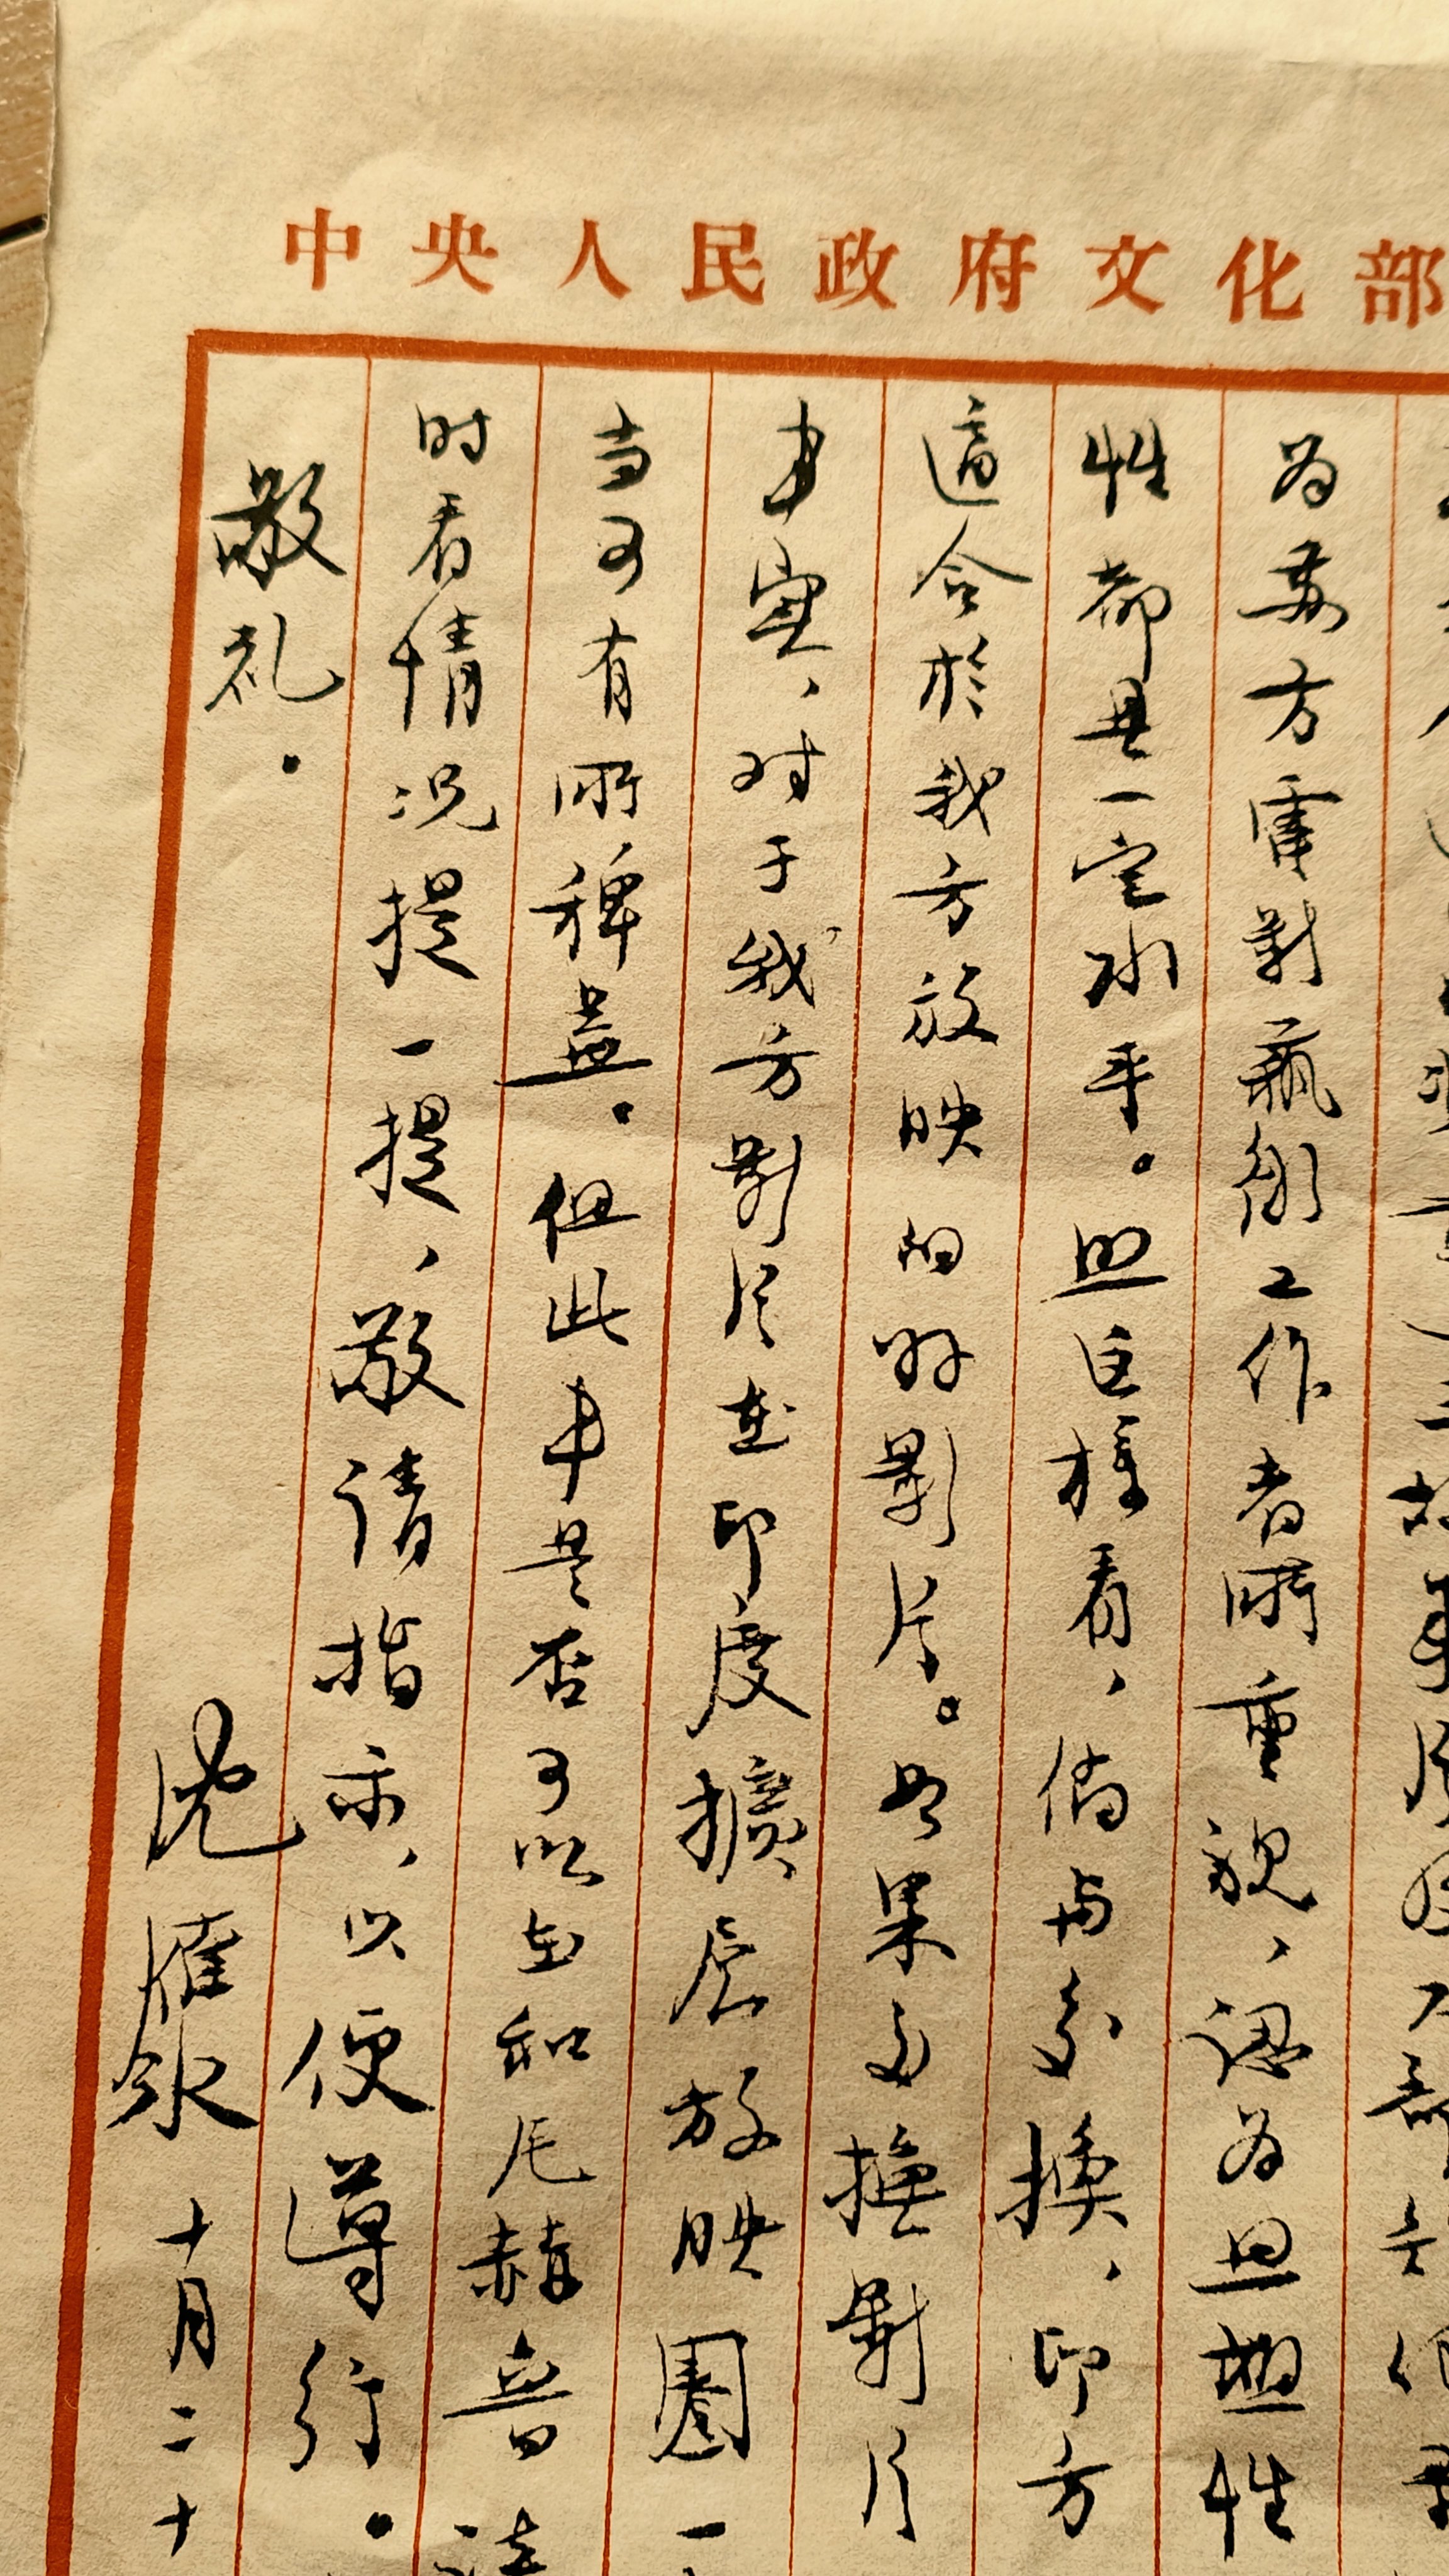 中央人民政府文化部
为苏方电影艺术工作者所重视，认为思想性
性都具一定水平。照这样看，倘与交换，印方
适合於我方放映的好影片。如果交换影片
事实，对于我方影片在印度擴展放映圈一
当可有所稗益。但此事是否可以在和尼赫鲁谈
时看情况提一提，敬请指示，以便遵行。
敬礼。
沈雁冰 十月二十